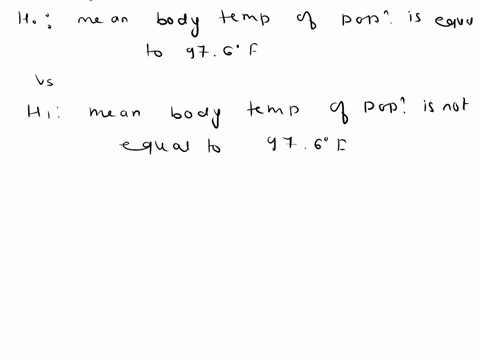 H₀: mean body temp of popⁿ is equa
to 97.6° F
Vs
H₁: mean body temp of popⁿ is not
equal to 97.6° F